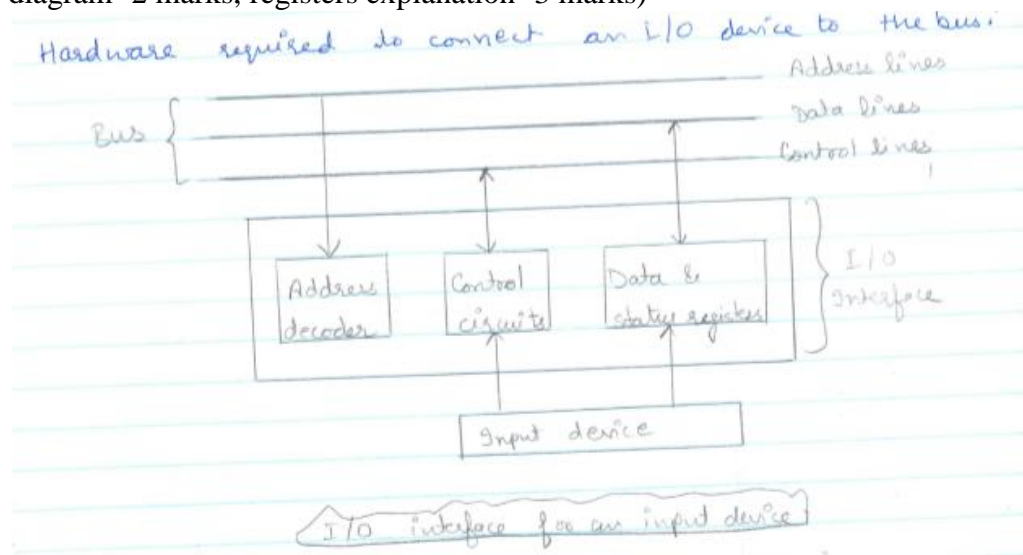 diagram -2 marks, registers explanation -3 marks)
Hardware required to connect an I/O device to the bus.
Address lines
Data lines
Bus
Control lines
Address
decoder
Control
circuits
Data &
status registers
I/O
Interface
Input device
I/O interface for an input device